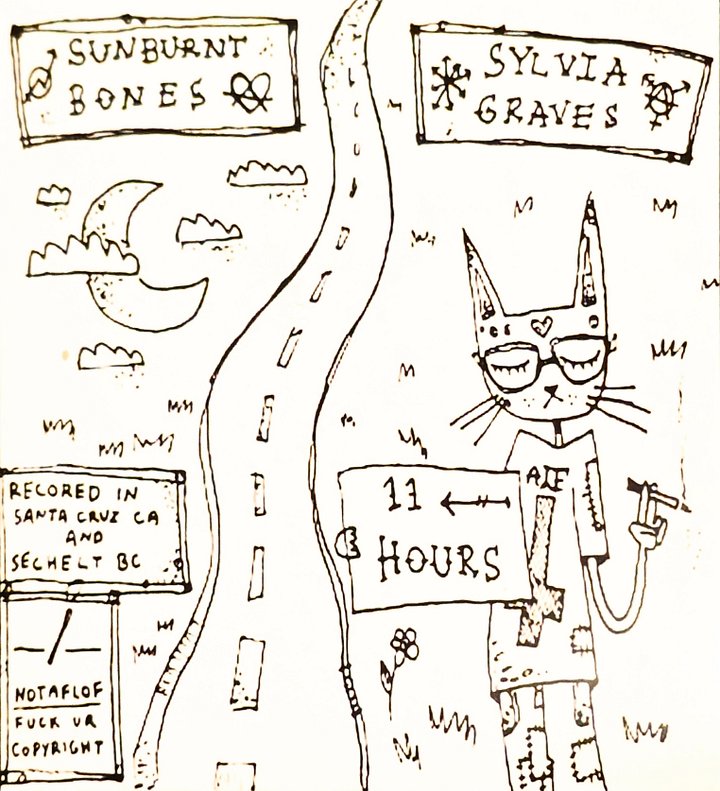 SUNBURNT
BONES
SYLVIA
GRAVES
RECORED IN
SANTA CRUZ CA
AND
SECHELT BC
11
HOURS
NOTAFLOF
FUCK UR
COPYRIGHT